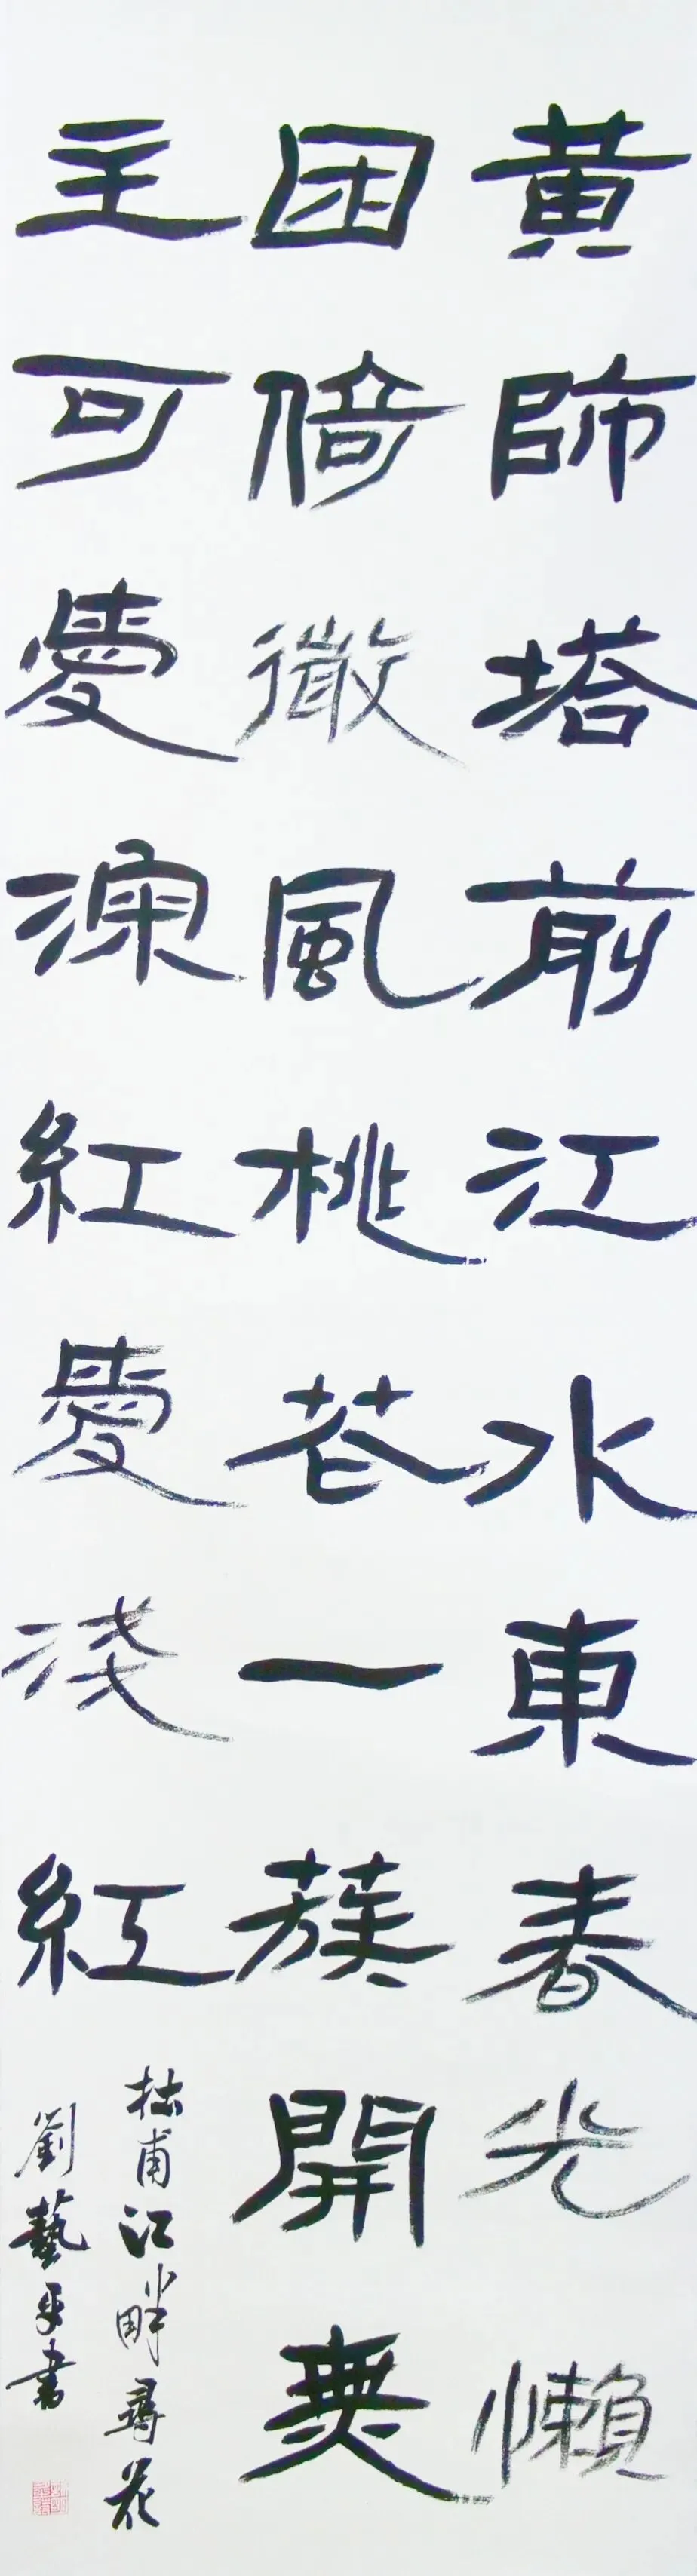 黄師塔前江水東春光懶
困倚微風桃花一蔟開無
主可愛深紅愛淺紅
杜甫江畔尋花
劉藝平書